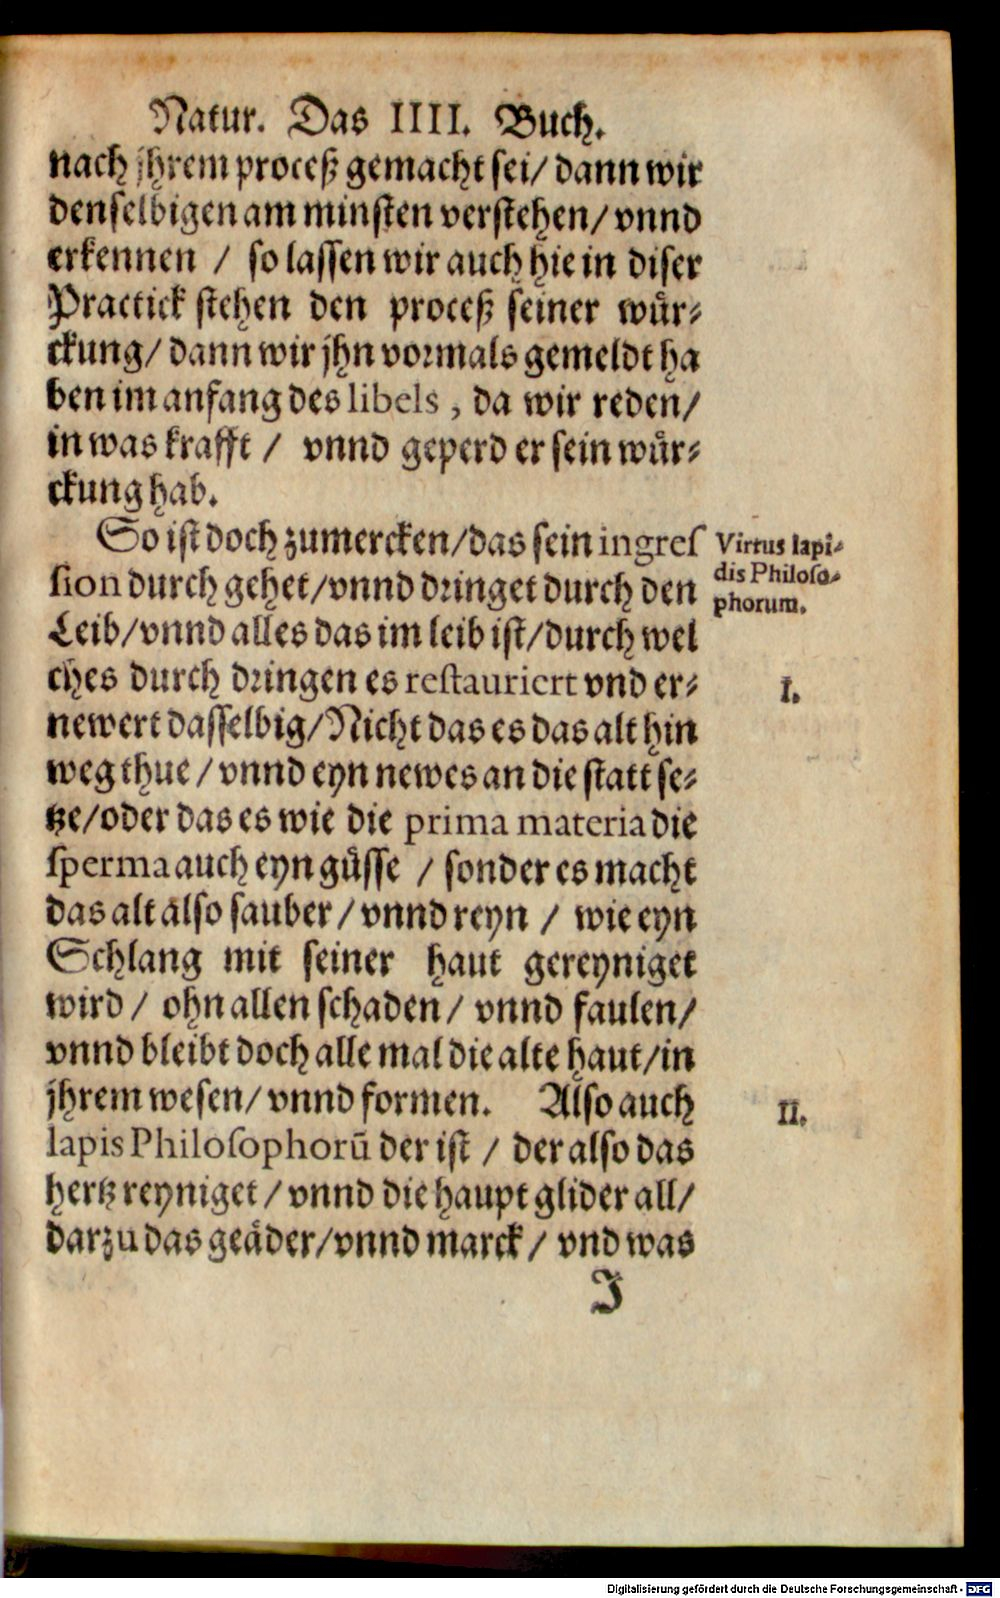 Natur. Das IIII. Buch.
nach jhrem proceß gemacht sei/ dann wir
denselbigen am minsten verstehen/ vnnd
erkennen / so lassen wir auch hie in diser
Practick stehen den proceß seiner wuͤr⸗
ckung/ dann wir jhn vormals gemeldt ha
ben im anfang des libels, da wir reden/
in was krafft / vnnd geperd er sein wuͤr⸗
ckung hab.
So ist doch zumercken/das sein ingres
sion durch gehet/vnnd dringet durch den
Leib/vnnd alles das im leib ist/durch wel
ches durch dringen es restauriert vnd er⸗
newert dasselbig/Nicht das es das alt hin
weg thue / vnnd eyn newes an die statt se⸗
tze/oder das es wie die prima materia die
sperma auch eyn guͤsse / sonder es macht
das alt also sauber/vnnd reyn / wie eyn
Schlang mit seiner haut gereyniget
wird/ ohn allen schaden/ vnnd faulen/
vnnd bleibt doch alle mal die alte haut/in
jhrem wesen/ vnnd formen. Also auch
lapis Philosophorū der ist / der also das
hertz reyniget/ vnnd die haupt glider all/
darzu das geaͤder/vnnd marck/ vnd was
J
Virtus lapi⸗
dis Philoso⸗
phorum.
I.
II.
Digitalisierung gefördert durch die Deutsche Forschungsgemeinschaft - DFG